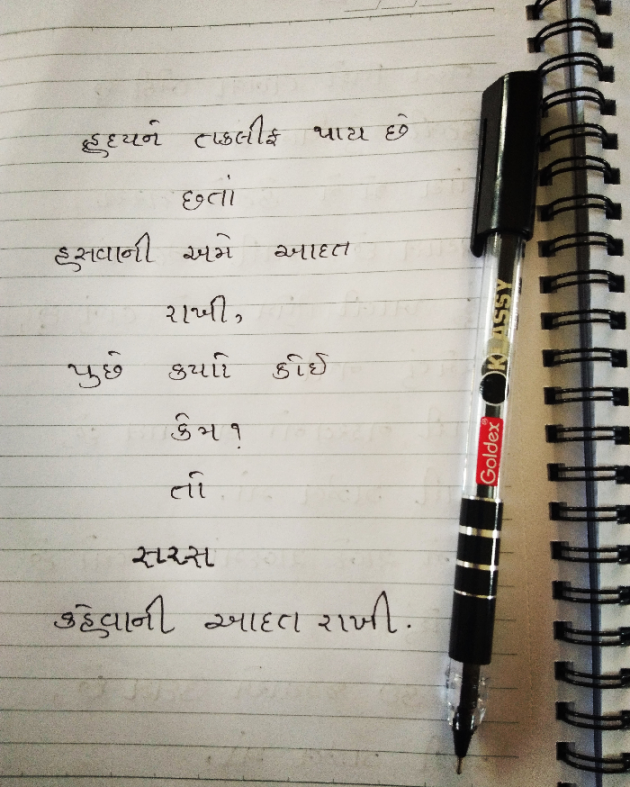 હૃદયને તકલીફ થાય છે
છતાં
હસવાની અમે આદત
રાખી,
પુછે કયારે કોઈ
કેમ?
તો
સરસ
કહેવાની આદત રાખી.
KLASSY
Goldex